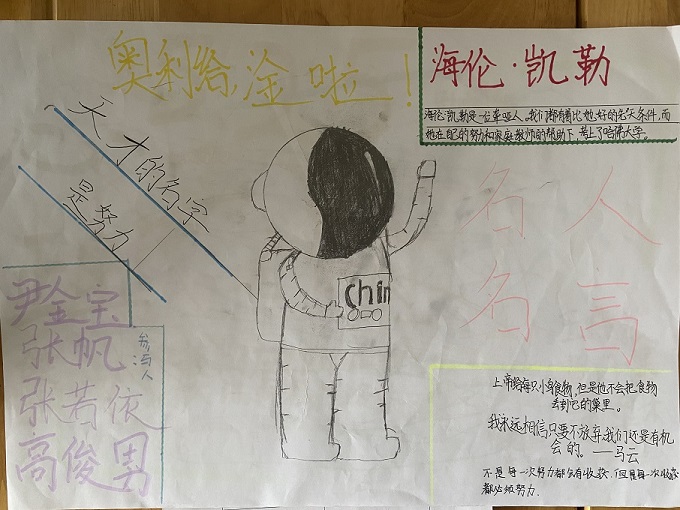 奥利给,淦啦!
海伦·凯勒
海伦·凯勒是一位聋哑人。我们都有着比她好的先天条件,而
她在自己的努力和家庭教师的帮助下,考上了哈佛大学。
天才的名字
是努力
名人
名言
Chin
参与人
尹金宝
张帆
张若依
高俊男
上帝给每只小鸟食物,但是他不会把食物
丢到它的巢里。
我永远相信只要不放弃,我们还是有机
会的。——马云
不是每一次努力都会有收获,但是每一次收获
都必须努力.